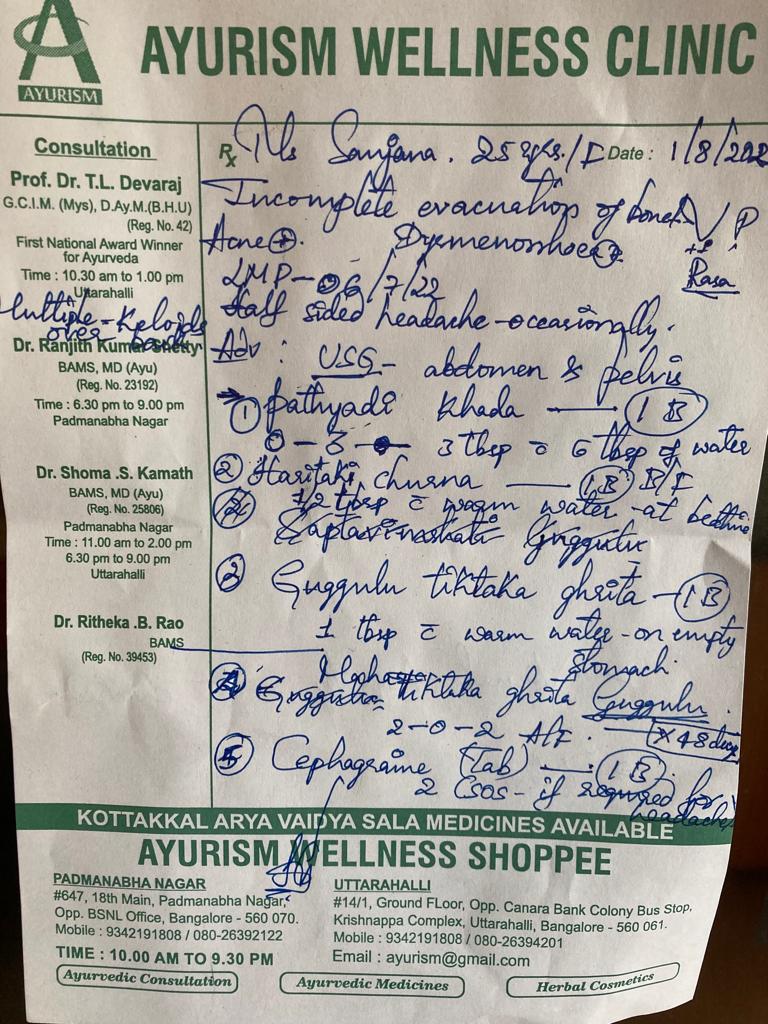 AYURISM
AYURISM WELLNESS CLINIC
Consultation
Prof. Dr. T.L. Devaraj
G.C.I.M. (Mys), D.Ay.M.(B.H.U)
(Reg. No. 42)
First National Award Winner
for Ayurveda
Time : 10.30 am to 1.00 pm
Uttarahalli
Multiple - Keloids
over back
Dr. Ranjith Kumar Shetty
BAMS, MD (Ayu)
(Reg. No. 23192)
Time : 6.30 pm to 9.00 pm
Padmanabha Nagar
Dr. Shoma .S. Kamath
BAMS, MD (Ayu)
(Reg. No. 25806)
Padmanabha Nagar
Time : 11.00 am to 2.00 pm
6.30 pm to 9.00 pm
Uttarahalli
Dr. Ritheka .B. Rao
BAMS
(Reg. No. 39453)
Rx Ms Sanjana . 25 yrs./F Date : 1/8/202
Incomplete evacuation of bowel V P
Acne +. Dysmenorrhoea +
Rasa
LMP - 06/7/22
Half sided headache - occasionally.
Adv : USG - abdomen & pelvis
1 Pathyadi Khada — 1 B
0 - 3 - 3 tbsp c̄ 6 tbsp of water
2 Haritaki churna — 1B B/F
1/2 tbsp c̄ warm water - at bedtime
Saptavinashati Guggulu
3 Guggulu tiktaka ghrita — 1 B
1 tbsp c̄ warm water - on empty
stomach.
4 tiktaka ghrita Guggulu.
2 - 0 - 2 A/F. — x 48 days
5 Cephagraine (Tab) — 1 B.
2 (SOS - if required for
headache)
KOTTAKKAL ARYA VAIDYA SALA MEDICINES AVAILABLE
AYURISM WELLNESS SHOPPEE
PADMANABHA NAGAR
#647, 18th Main, Padmanabha Nagar,
Opp. BSNL Office, Bangalore - 560 070.
Mobile : 9342191808 / 080-26392122
TIME : 10.00 AM TO 9.30 PM
UTTARAHALLI
#14/1, Ground FLoor, Opp. Canara Bank Colony Bus Stop,
Krishnappa Complex, Uttarahalli, Bangalore - 560 061.
Mobile : 9342191808 / 080-26394201
Email : ayurism@gmail.com
Ayurvedic Consultation Ayurvedic Medicines Herbal Cosmetics